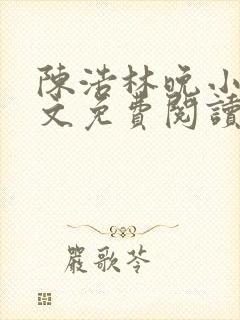 陳浩林晚小
文免費閱讀
嚴歌苓